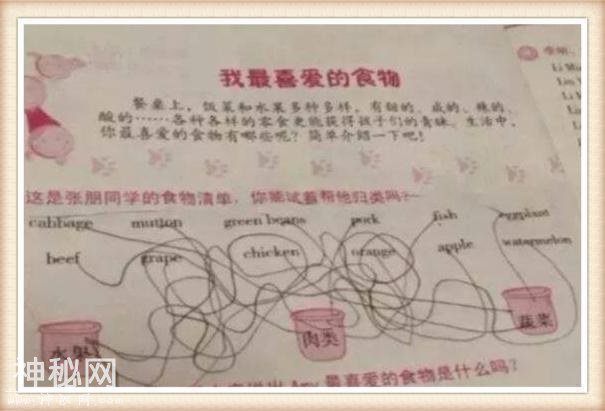 我最喜爱的食物
餐桌上，饭菜和水果多种多样，有甜的、咸的、辣的、
酸的……各种各样的零食更能获得孩子们的青睐。生活中，
你最喜爱的食物有哪些呢？简单介绍一下吧！
这是张朋同学的食物清单，你能试着帮他归类吗？
cabbage mutton green beans pork fish eggplant
beef grape chicken orange apple watermelon
水果 肉类 蔬菜
最喜爱的食物是什么吗？
李明
Li
神秘网